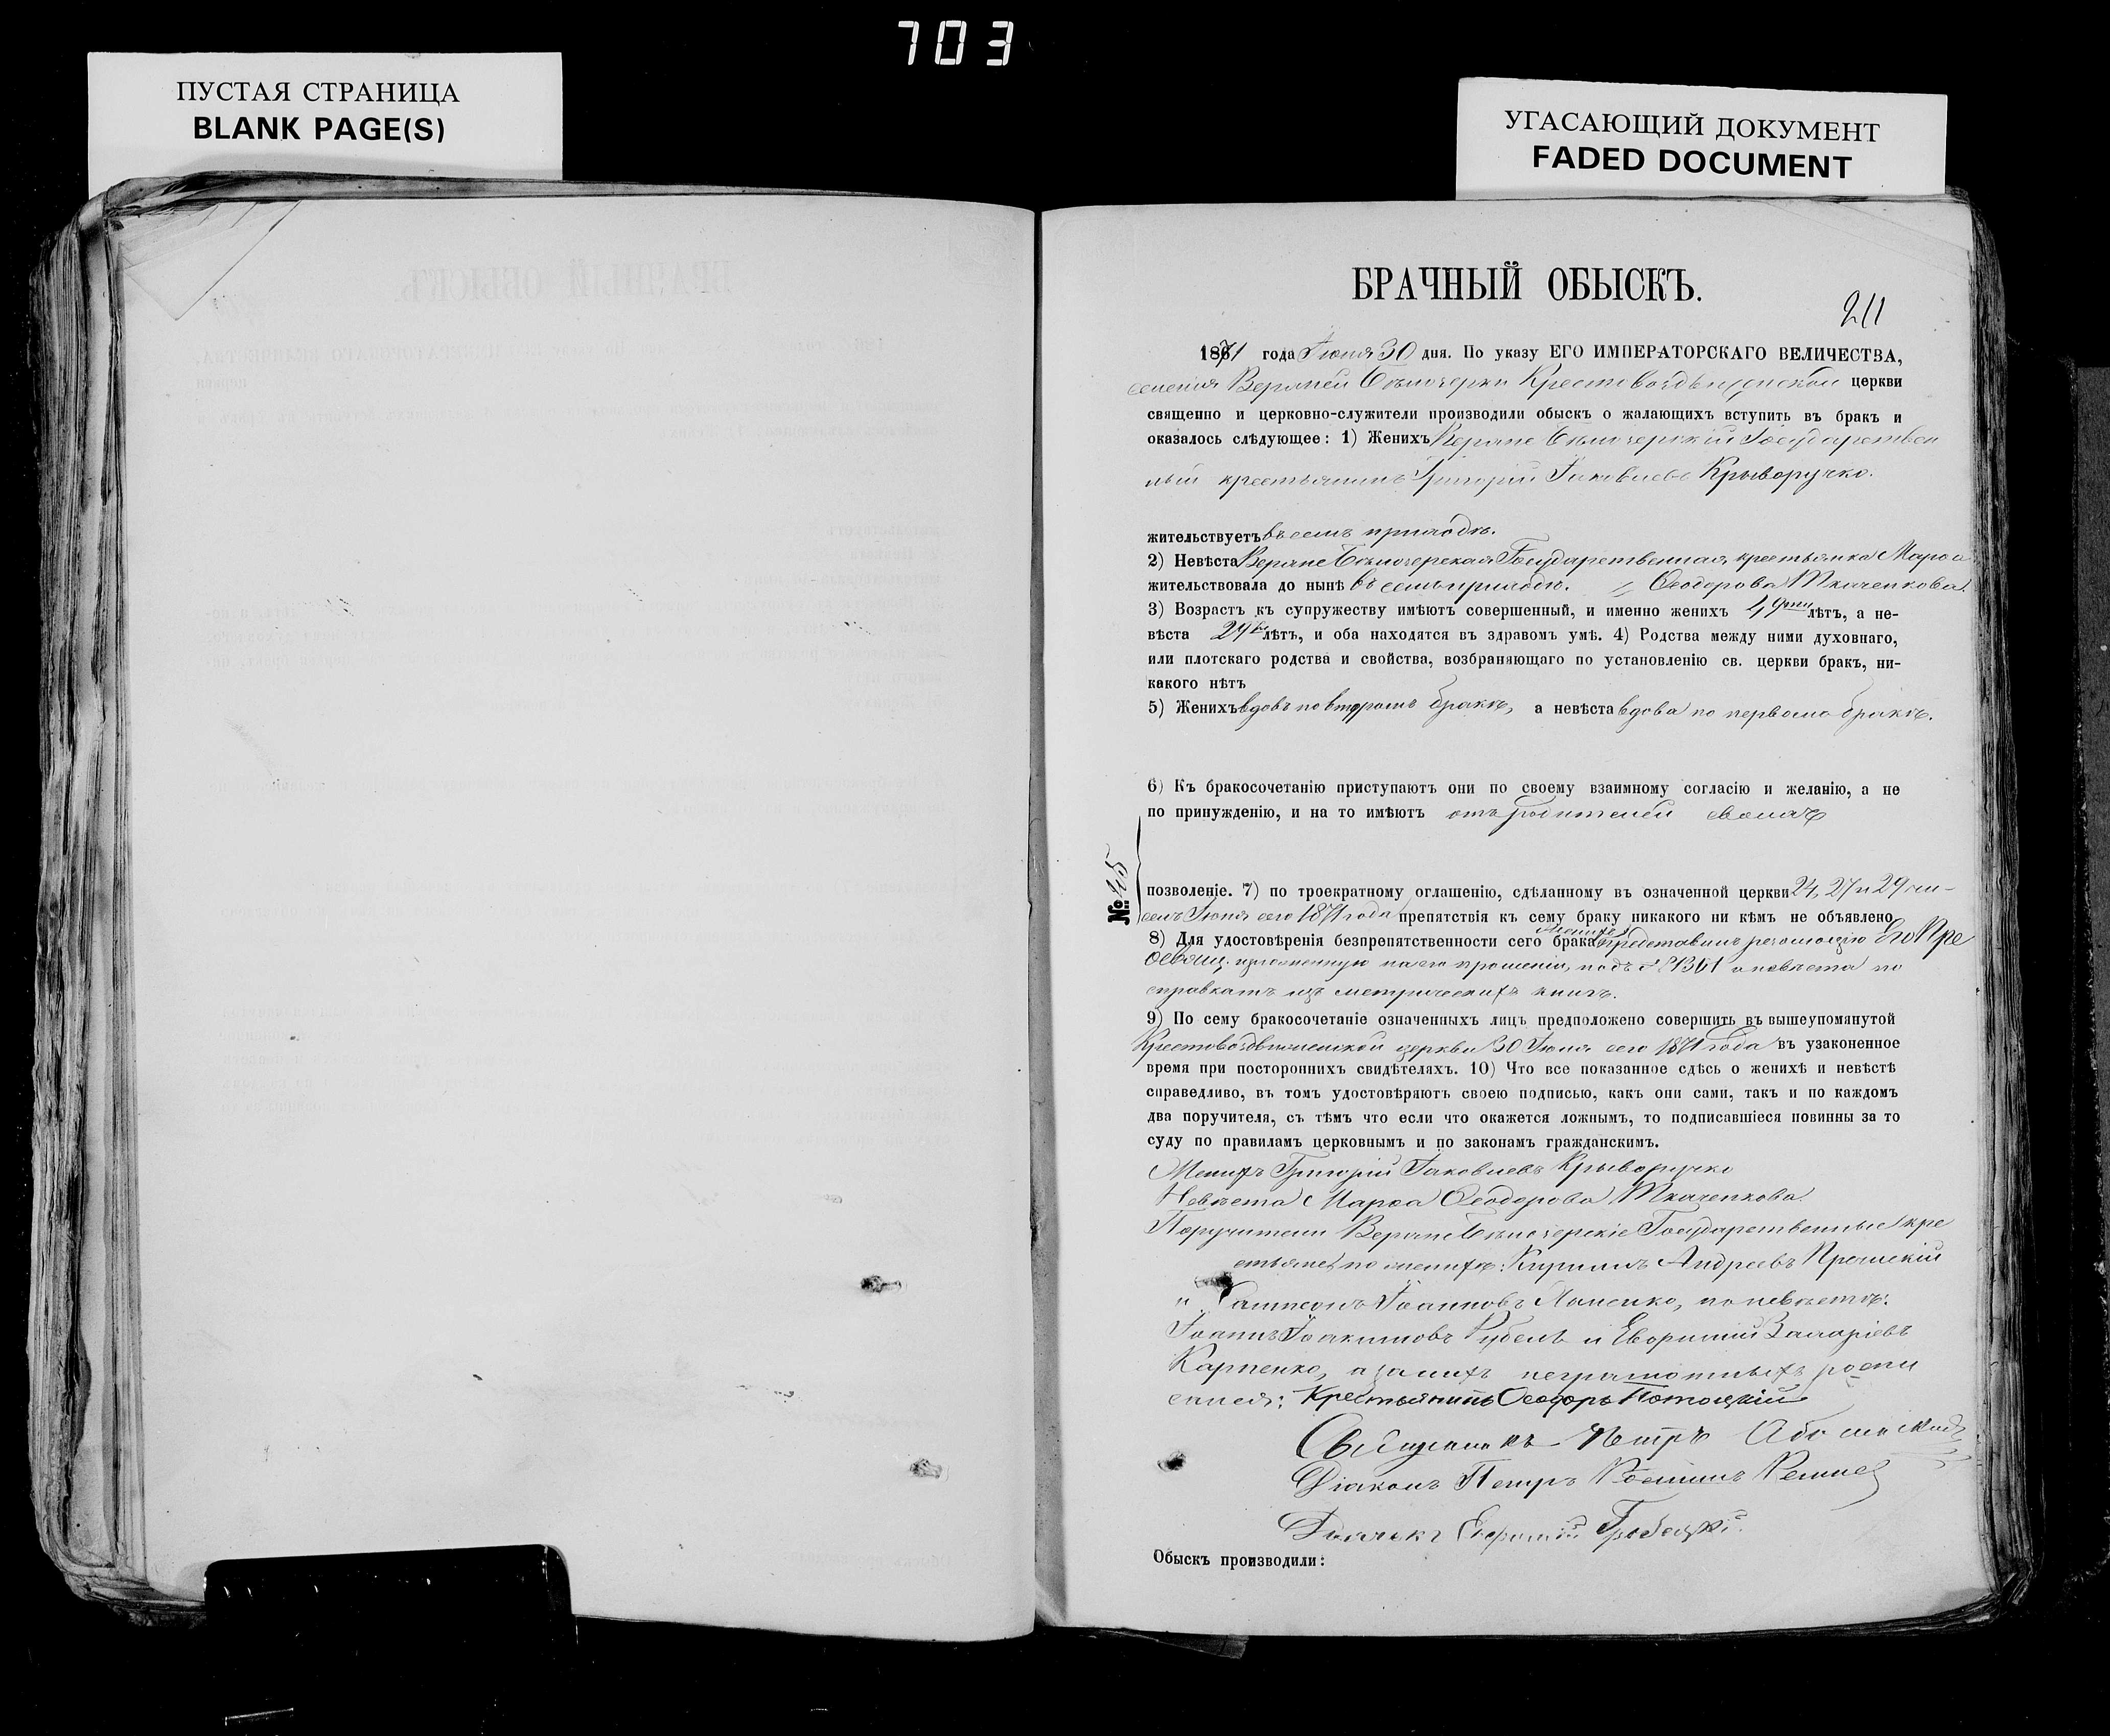 703
ПУСТАЯ СТРАНИЦА
BLANK PAGE(S)
УГАСАЮЩИЙ ДОКУМЕНТ
FADED DOCUMENT
БРАЧНЫЙ ОБЫСКЪ.
211
1871 года Іюня 30 дня. По указу ЕГО ИМПЕРАТОРСКАГО ВЕЛИЧЕСТВА,
селенія Верхней Бѣлозерки Крестовоздвиженской церкви
священно и церковно-служители производили обыскъ о жалающихъ вступить въ бракъ и
оказалось слѣдующее: 1) Женихъ Верхне Бѣлозерскій Государствен
ный крестьянинъ Григорій Іаковлевъ Крыворучко.
жительствуетъ въ семъ приходѣ.
2) Невѣста Верхне Бѣлозерская Государственная крестьянка Марѳа
жительствовала до нынѣ въ семъ приходѣ. Ѳеодорова Ткаченкова.
3) Возрастъ къ супружеству имѣютъ совершенный, и именно женихъ лѣтъ, а не-
вѣста 29 лѣтъ, и оба находятся въ здравомъ умѣ. 4) Родства между ними духовнаго,
или плотскаго родства и свойства, возбраняющаго по установленію св. церкви брак, ни-
какого нѣтъ
5) Женихъ вдовъ по второмъ бракѣ, а невѣста вдова по первомъ бракѣ.
6) Къ бракосочетанію приступаютъ они по своему взаимному согласію и желанію, а не
по принужденію, и на то имѣютъ отъ родителей своихъ
№ 45
позволеніе. 7) по троекратному оглашенію, сдѣланному въ означенной церкви 24, 27 и 29 чи-
селъ Іюня сего 1871 года препятствія къ сему браку никакого ни кѣмъ не объявлено
8) Для удостовѣренія безпрепятственности сего брака женихъ представилъ резолюцію Его Пре
освящ. изложенную на его прошеніи, подъ № 1361 а невѣста по
справкамъ изъ метрическихъ книгъ.
9) По сему бракосочетаніе означенныхъ лицъ предположено совершить въ вышеупомянутой
Крестовоздвиженской церкви 30 Іюня сего 1871 года въ узаконенное
время при постороннихъ свидѣтеляхъ. 10) Что все показанное сдѣсь о женихѣ и невѣстѣ
справедливо, въ томъ удостовѣряютъ своею подписью, какъ они сами, такъ и по каждомъ
два поручителя, съ тѣмъ что если что окажется ложнымъ, то подписавшіеся повинны за то
суду по правиламъ церковнымъ и по законамъ гражданскимъ.
Женихъ Григорій Іаковлевъ Крыворучко
Невѣста Марѳа Ѳеодорова Ткаченкова.
Поручители Верхне Бѣлозерскіе Государственные кре
стьяне, по женихѣ: Кириллъ Андреевъ
и Сампсонъ Іоанновъ по невѣстѣ:
Іоаннъ Іоакимовъ Рубель и Евфимій Захаріевъ
Карпенко, а за нихъ неграмотныхъ роспи
сался: Крестьянинъ Ѳеодоръ Потоцкій
Священникъ Петръ
Діаконъ Петръ
Дьячекъ Евфимій
Обыскъ производили: